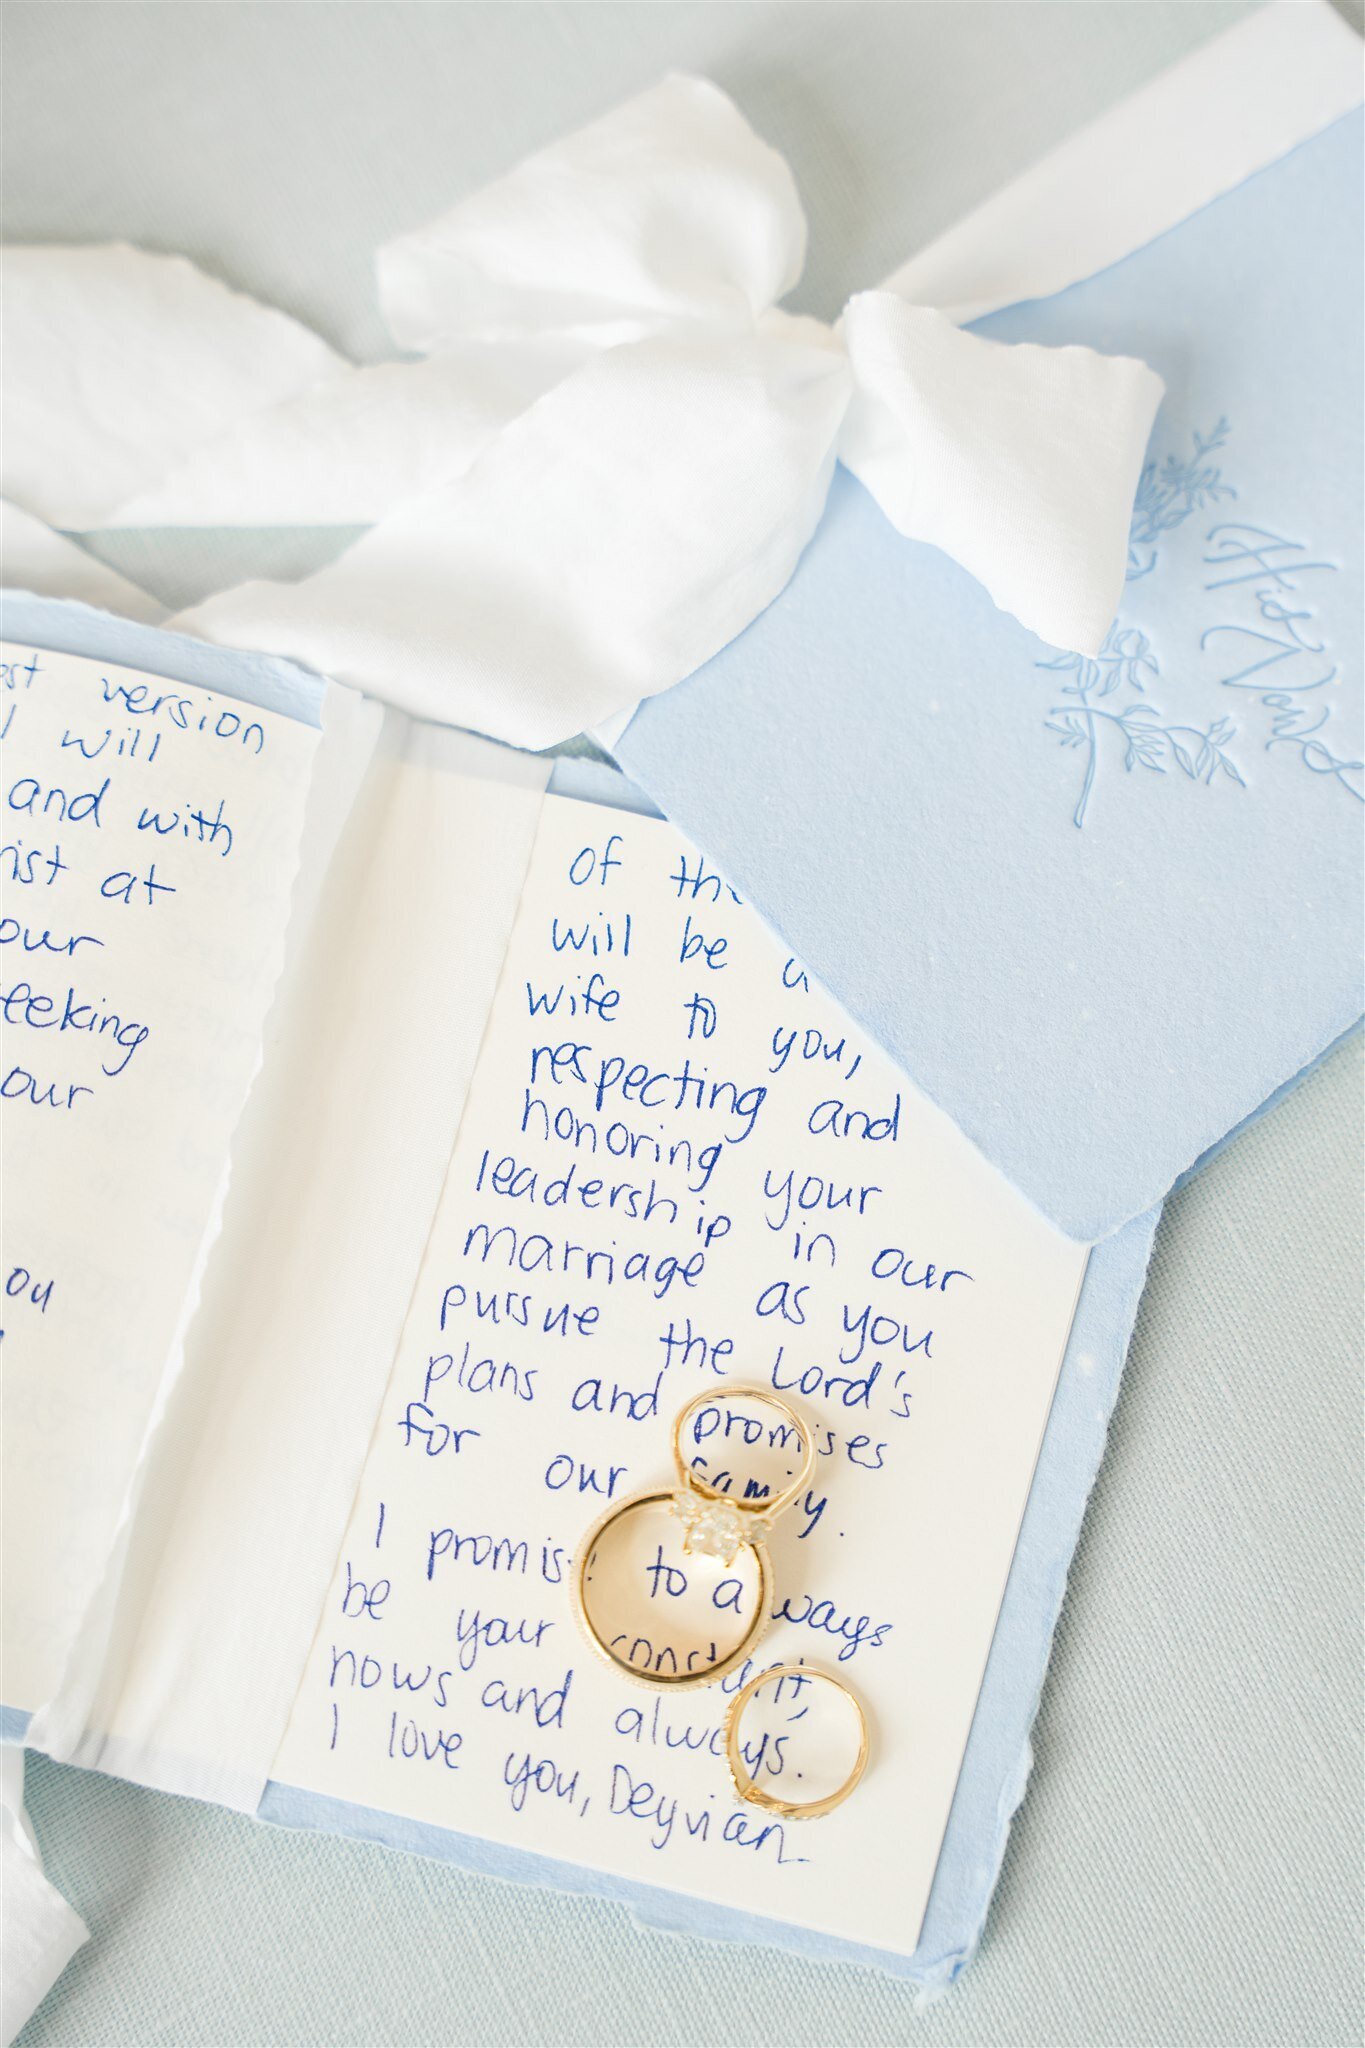 His Vows
version
I will
and with
at
our
our
of
will be a
wife to you,
respecting and
honoring your
leadership in our
marriage as you
pursue the Lord's
plans and promises
for our family.
I promise to always
be your constant,
nows and always.
I love you, Deyvian.